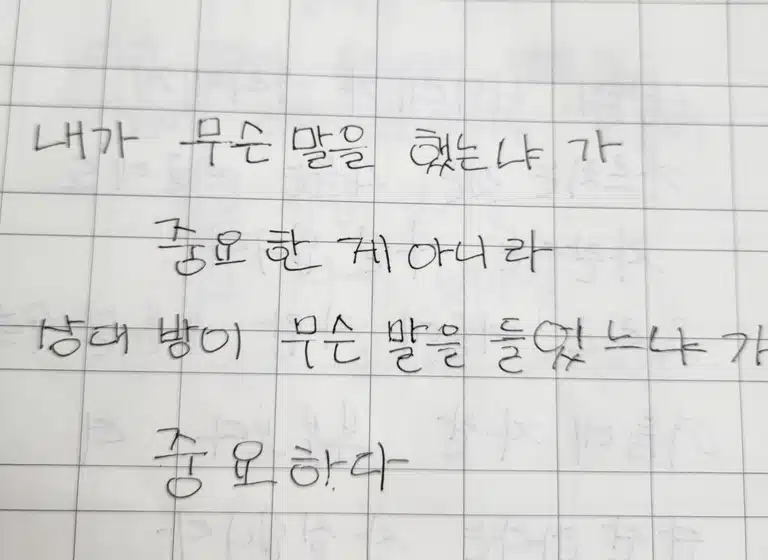 내가 무슨 말을 했는냐가
중요한 게 아니라
상대방이 무슨 말을 들었느냐가
중요하다